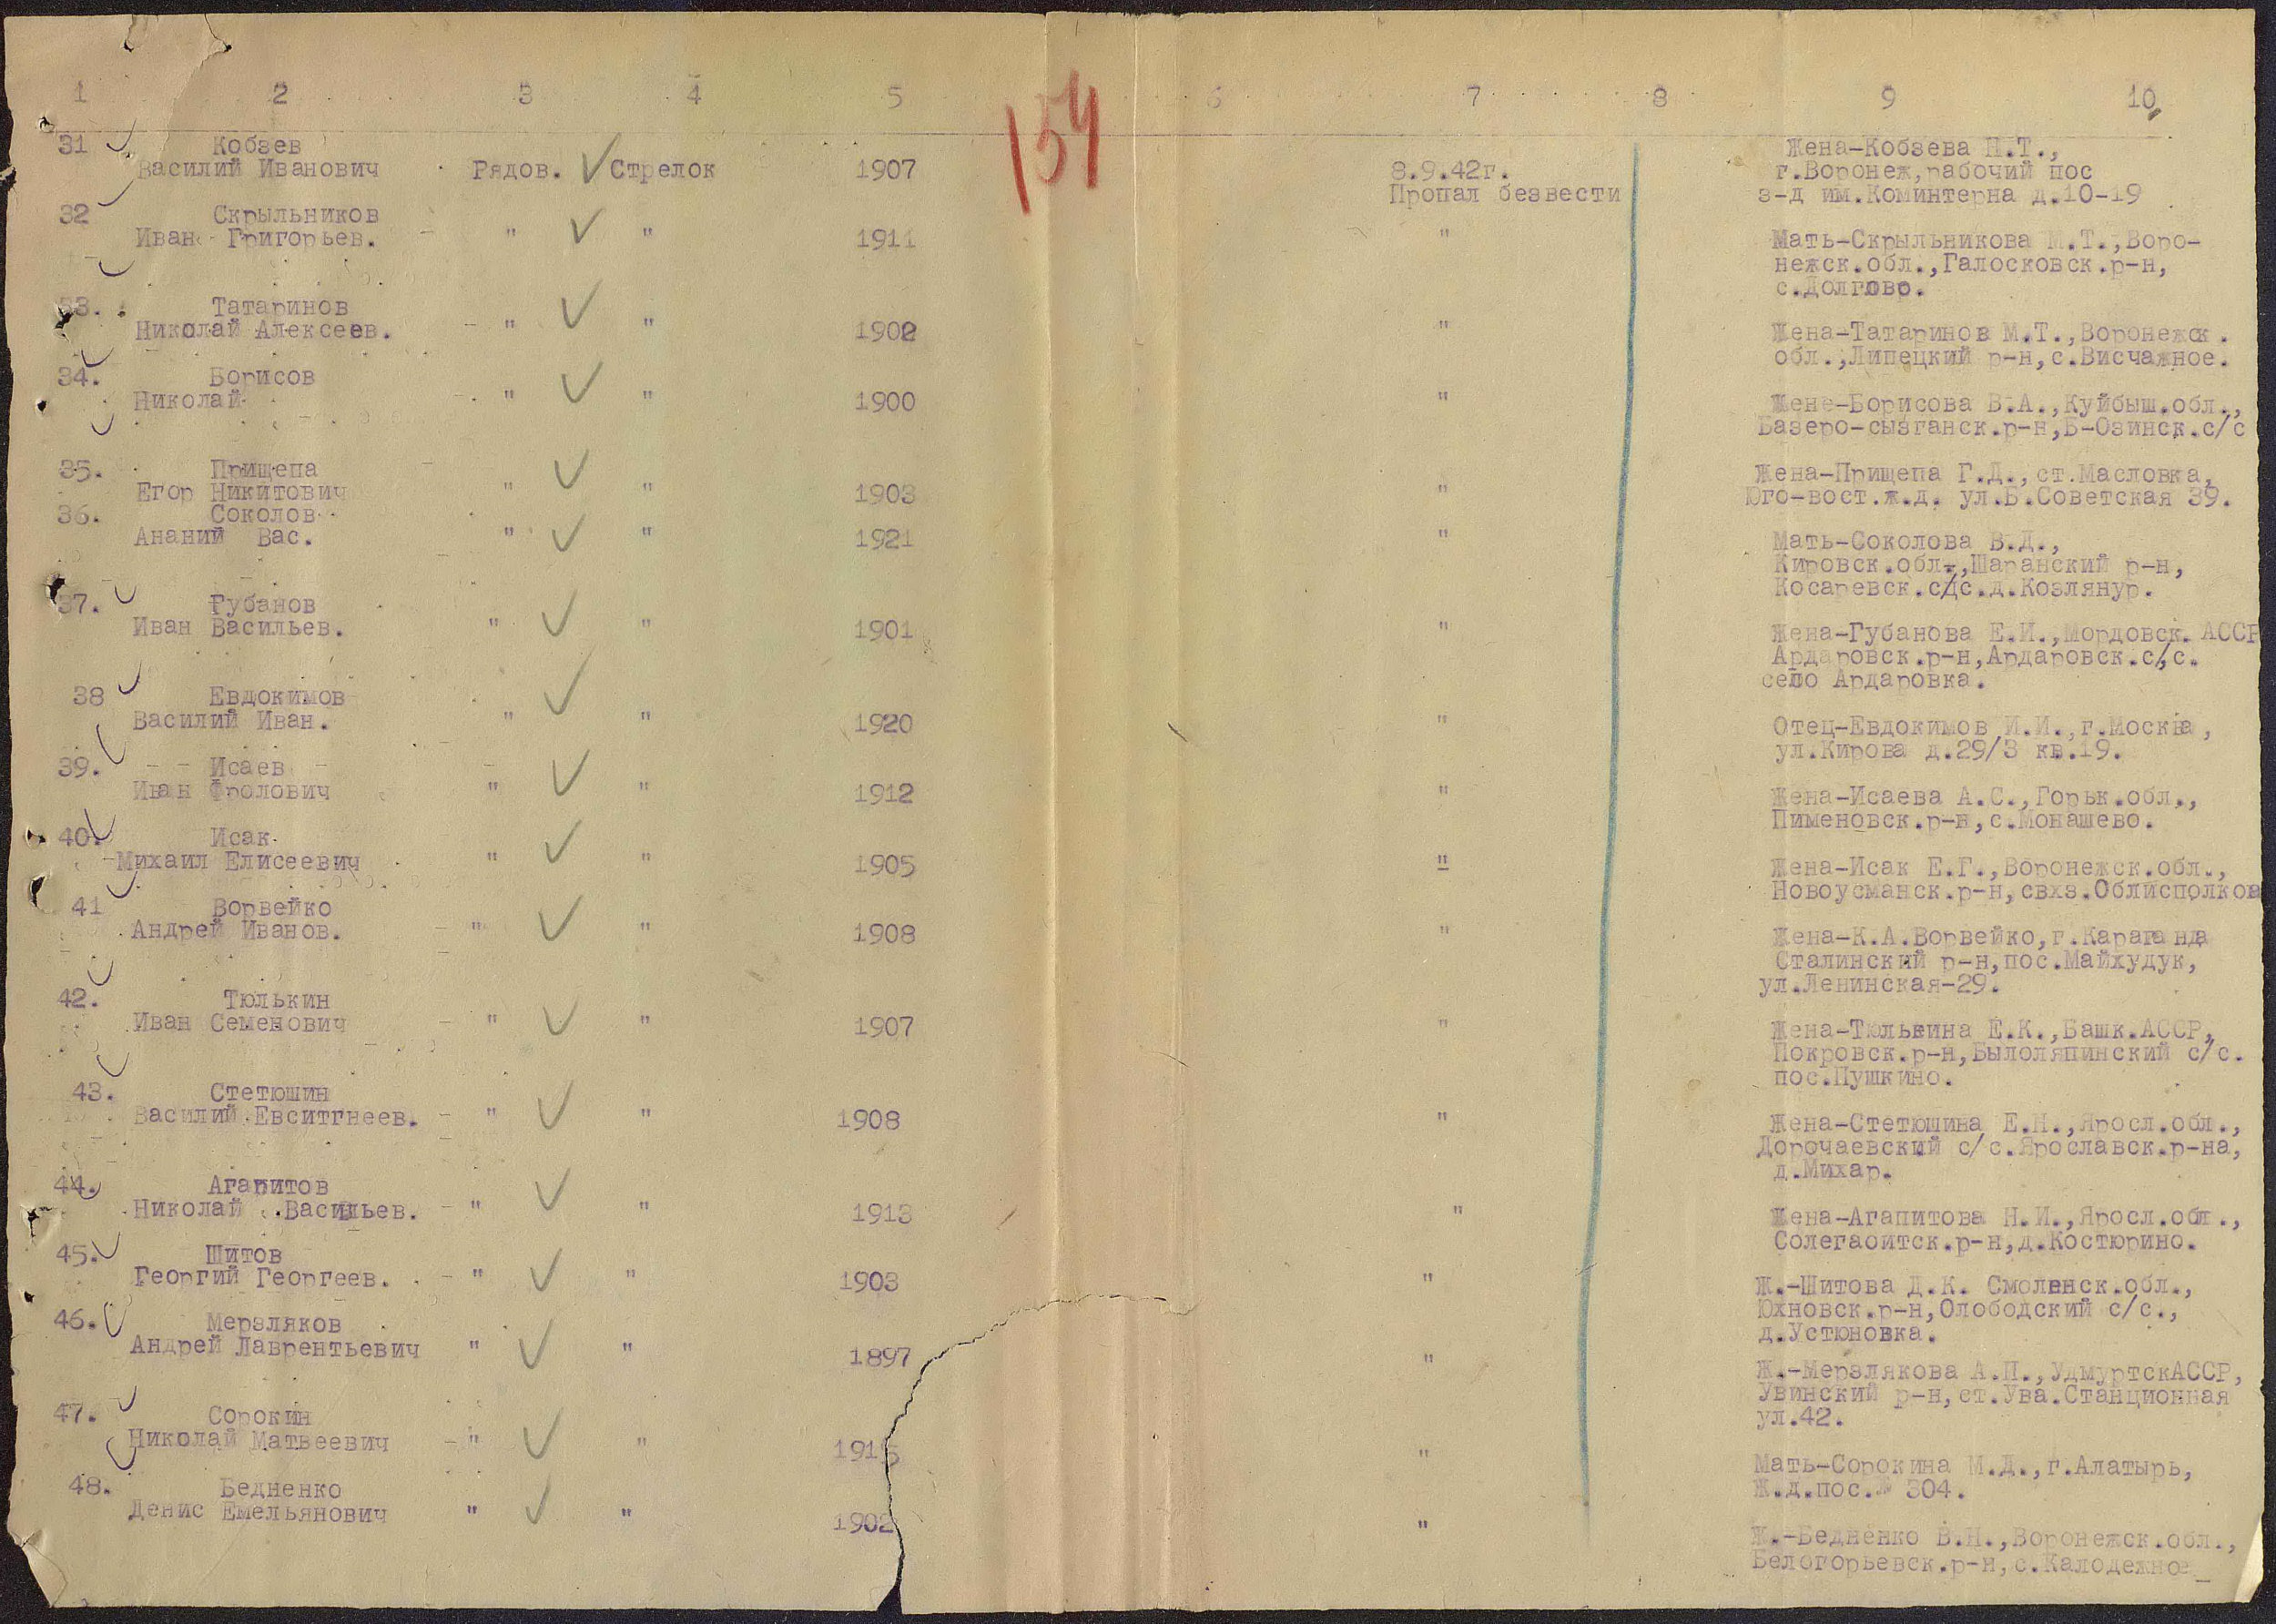 1 2 3 4 5 6 7 8 9 10
154
31 Кобзев
Василий Иванович Рядов. Стрелок 1907 8.9.42г. Пропал безвести
Жена-Кобзева П.Т.,
г.Воронеж,рабочий пос
з-д им.Коминтерна д.10-19
32 Скрыльников
Иван Григорьев. " " 1911 "
Мать-Скрыльникова М.Т.,Воро-
нежск.обл.,Галосковск.р-н,
с.Долгово.
33. Татаринов
Николай Алексеев. " " 1902 "
Жена-Татаринов М.Т.,Воронежск.
обл.,Липецкий р-н,с.Висчажное.
34. Борисов
Николай " " 1900 "
Жене-Борисова В.А.,Куйбыш.обл.,
Базеро-сызганск.р-н,Б-Озинск.с/с
35. Прищепа
Егор Никитович " " 1903 "
Жена-Прищепа Г.Д.,ст.Масловка,
Юго-вост.ж.д. ул.Б.Советская 39.
36. Соколов
Ананий Вас. " " 1921 "
Мать-Соколова В.Д.,
Кировск.обл.,Шаранский р-н,
Косаревск.с/с.д.Козлянур.
37. Губанов
Иван Васильев. " " 1901 "
Жена-Губанова Е.И.,Мордовск. АССР
Ардаровск.р-н,Ардаровск.с/с.
село Ардаровка.
38 Евдокимов
Василий Иван. " " 1920 "
Отец-Евдокимов И.И.,г.Москва,
ул.Кирова д.29/3 кв.19.
39. Исаев
Иван Фролович " " 1912 "
Жена-Исаева А.С.,Горьк.обл.,
Пименовск.р-н,с.Монашево.
40. Исак
Михаил Елисеевич " " 1905 "
Жена-Исак Е.Г.,Воронежск.обл.,
Новоусманск.р-н,свхз.Облисполкова
41 Ворвейко
Андрей Иванов. " " 1908 "
Жена-К.А.Ворвейко,г.Караганда
Сталинский р-н,пос.Майхудук,
ул.Ленинская-29.
42. Тюлькин
Иван Семенович " " 1907 "
Жена-Тюлькина Е.К.,Башк.АССР,
Покровск.р-н,Былоляпинский с/с.
пос.Пушкино.
43. Стетюшин
Василий Евситгнеев. " " 1908 "
Жена-Стетюшина Е.Н.,Яросл.обл.,
Дорочаевский с/с.Ярославск.р-на,
д.Михар.
44. Агапитов
Николай Васильев. " " 1913 "
Жена-Агапитова Н.И.,Яросл.обл.,
Солегаоитск.р-н,д.Костюрино.
45. Шитов
Георгий Георгеев. " " 1903 "
Ж.-Шитова Д.К. Смоленск.обл.,
Юхновск.р-н,Олободский с/с.,
д.Устюновка.
46. Мерзляков
Андрей Лаврентьевич " " 1897 "
Ж.-Мерзлякова А.П.,УдмуртскАССР,
Увинский р-н,ст.Ува.Станционная
ул.42.
47. Сорокин
Николай Матвеевич " " 1915 "
Мать-Сорокина М.Д.,г.Алатырь,
Ж.д.пос.№ 304.
48. Бедненко
Денис Емельянович " " 1902 "
Ж.-Бедненко В.Н.,Воронежск.обл.,
Белогорьевск.р-н,с.Калодежное